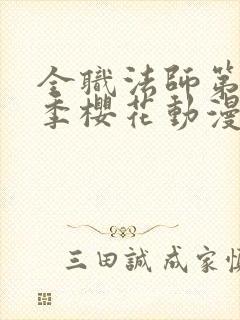 全職法師第
季櫻花動漫
三田誠 成家慎